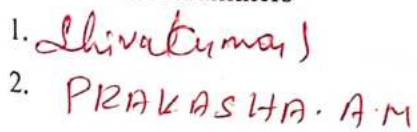 1. Shivakumar)
2. PRAKASHA. A.M